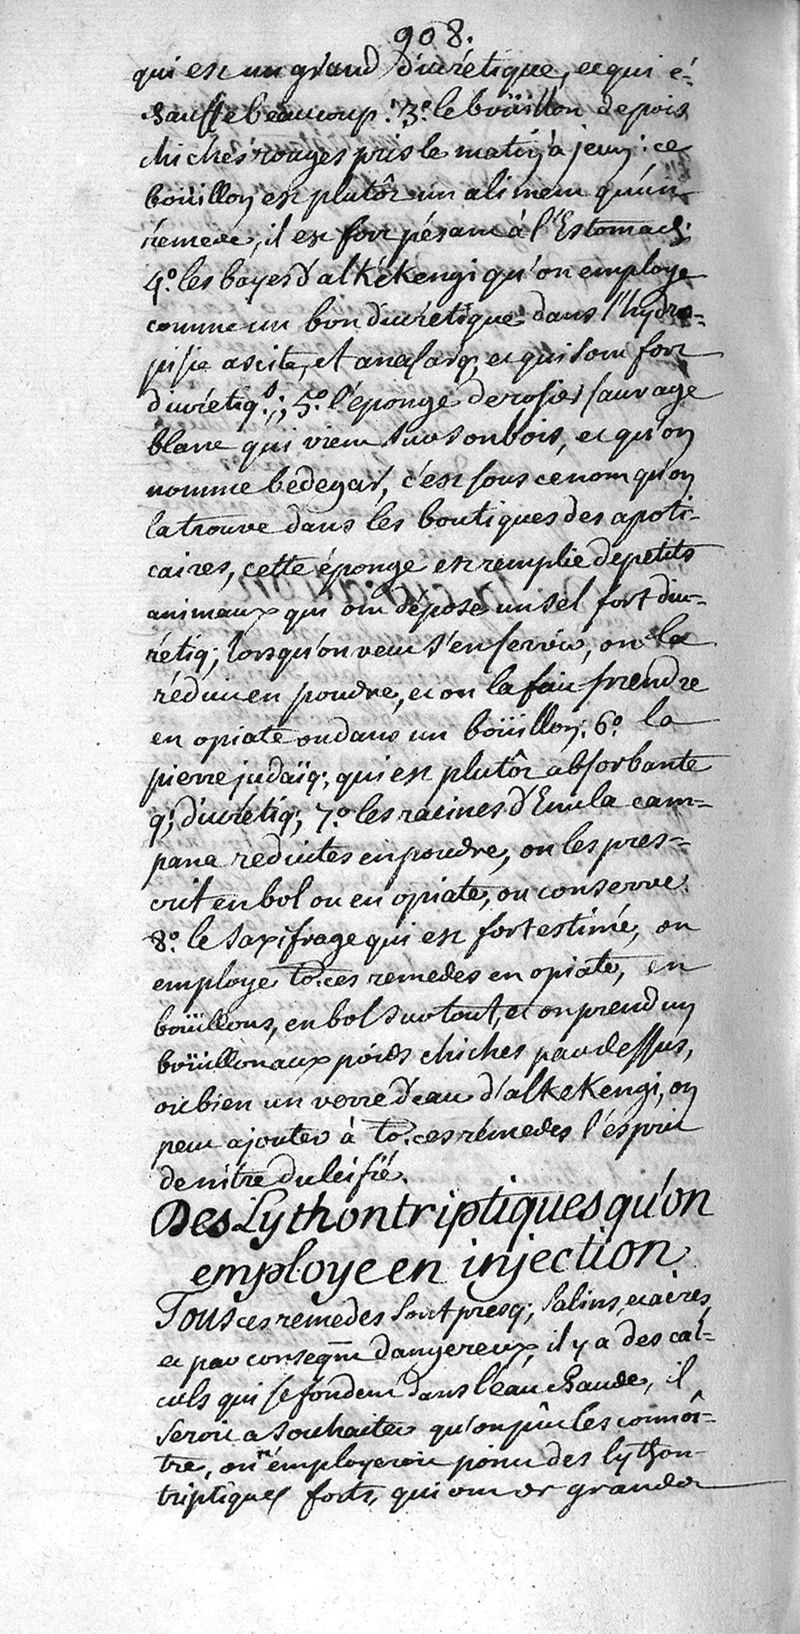 908.
qui est un grand diurétique, et qui é-
chauffe beaucoup: 3.º le boüillon de pois
chiches rouges pris le matin à jeun: ce
boüillon est plutôt un aliment qu'un
remede, il est fort pésant à l'Estomach;
4.º les bayes d'alkékengi qu'on employe
comme un bon diurétique dans l'hydro-
pisie ascite, et anasarq; et qui sont fort
diurétiq.s; 5.º l'éponge de rosier sauvage
blanc qui vient sur son bois, et qu'on
nomme bédegar, c'est sous ce nom qu'on
la trouve dans les boutiques des apoti-
caires, cette éponge est remplie de petits
animaux qui ont déposé un sel fort diu-
rétiq; lorsqu'on veut s'en servir, on la
réduit en poudre, et on la fait prendre
en opiate ou dans un boüillon: 6.º la
pierre judaïq; qui est plutôt absorbante
q; diurétiq; 7.º les racines d'Enula cam-
pana reduites en poudre, on les pres-
crit en bol ou en opiate, ou conserve
8.º le saxifrage qui est fort estimé, on
employe to: ces remedes en opiate, en
boüillons, en bol surtout, et on prend un
boüillon aux poids chiches par dessus,
ou bien un verre d'eau d'alkekengi, on
peut ajouter à to: ces rémedes l'esprit
de nitre dulcifié.
Des Lythontriptiques qu'on
employe en injection
Tous ces remedes sont presq; salins, et acres,
et par conseqm̄ dangereux, il y a des cal-
culs qui se fondent dans l'eau chaude, il
seroit a souhaiter qu'on pût les connoî-
tre, on n'émployeroit point des lython-
triptiques forts, qui ont de grands